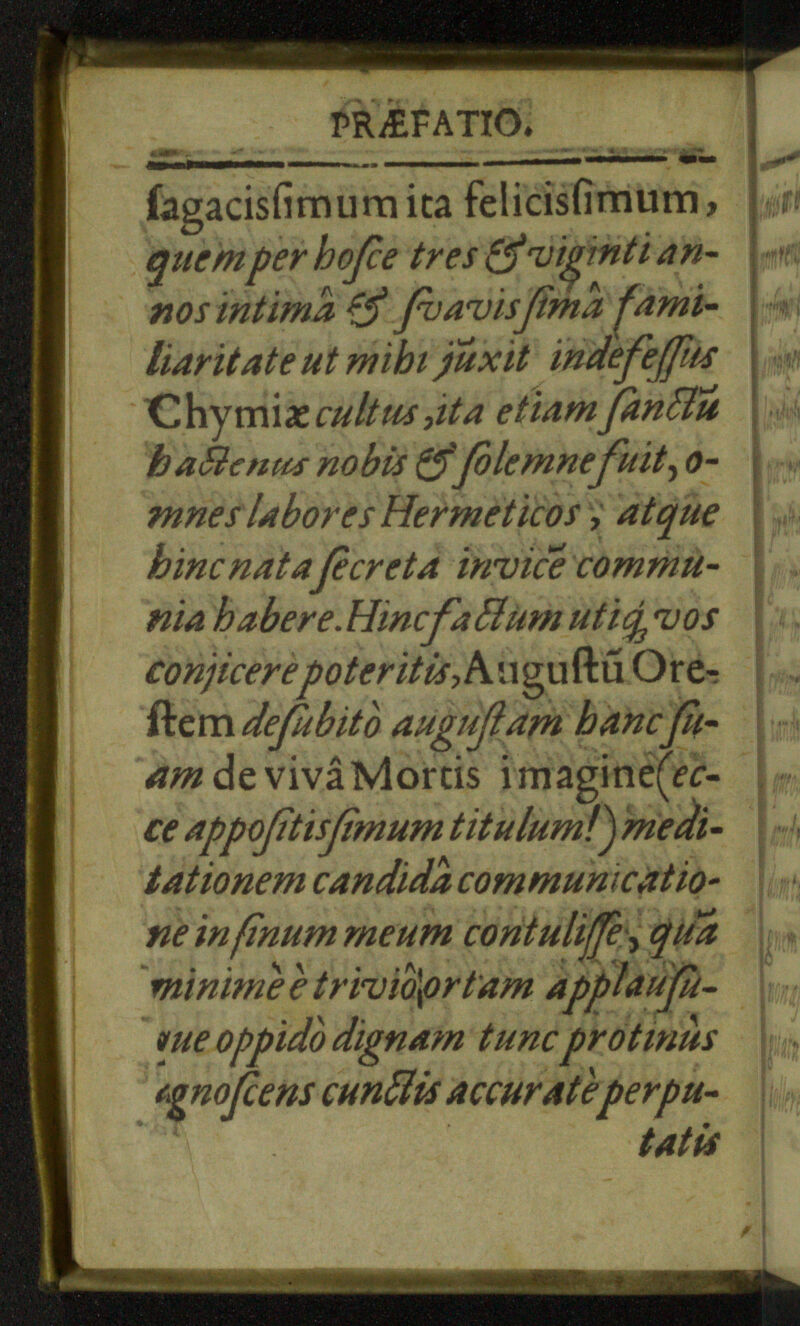 PRÆFATIO.
ſagacisſimum ita felicisſimum,
quem per hoſce tres & viginti an-
nos intimâ & ſvavisſimâ fami-
liaritate ut mihi juxit indefeſſus
Chymiæ cultus, ita etiam ſanctū
hactenus nobis & ſolemne fuit, o-
mnes labores Hermeticos, atque
hinc nata ſecreta invicē commu-
nia habere. Hinc factum utiq; vos
conjicere poteritis, Auguſtū Ore-
ſtem deſubitò auguſtam hanc ſu-
am de vivâ Mortis imagine (ec-
ce appoſitisſimum titulum!) medi-
tationem candidâ communicatio-
ne in ſinum meum contuliſſe, quā
minimè è trivio ortam applauſu-
que oppidò dignam tunc protinùs
agnoſcens cunctis accuratè perpu-
tatis